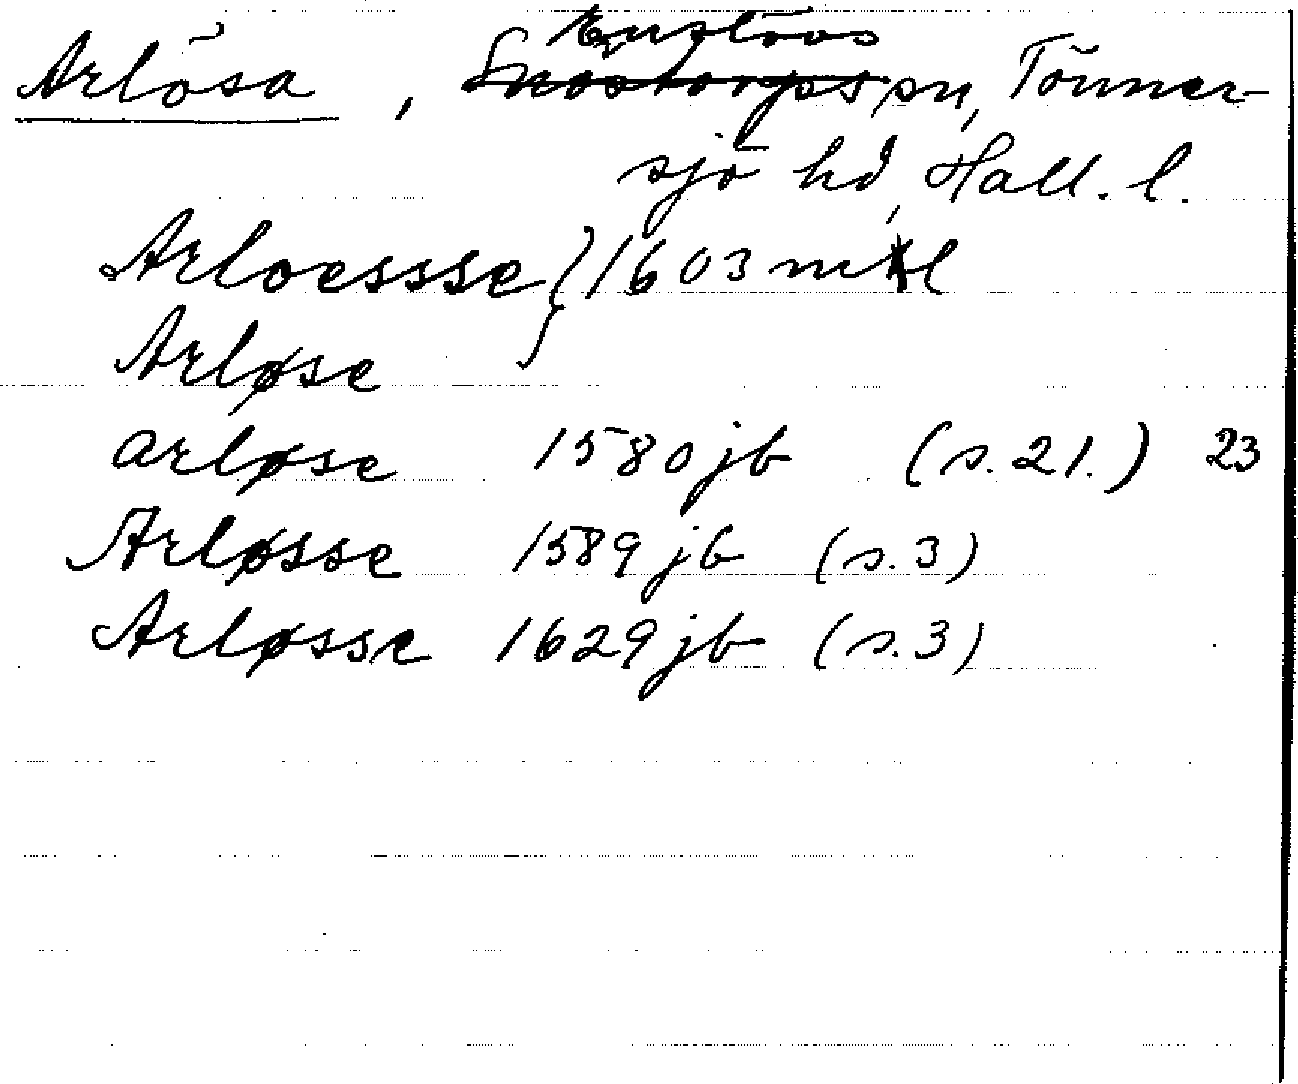 Enslövs
Arlösa, Snöstorps sn, Tönner-
sjö hd, Hall. l.
Arloessse } 1603 mtl
Arløse
arløse 1580 jb (s. 21.) 23
Arløsse 1589 jb (s. 3)
Arløsse 1629 jb (s. 3)